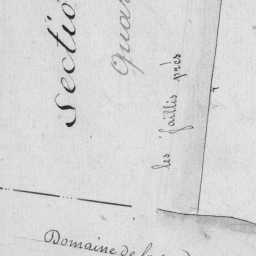 Sectio
Quar
les faillis près
Domaine de la